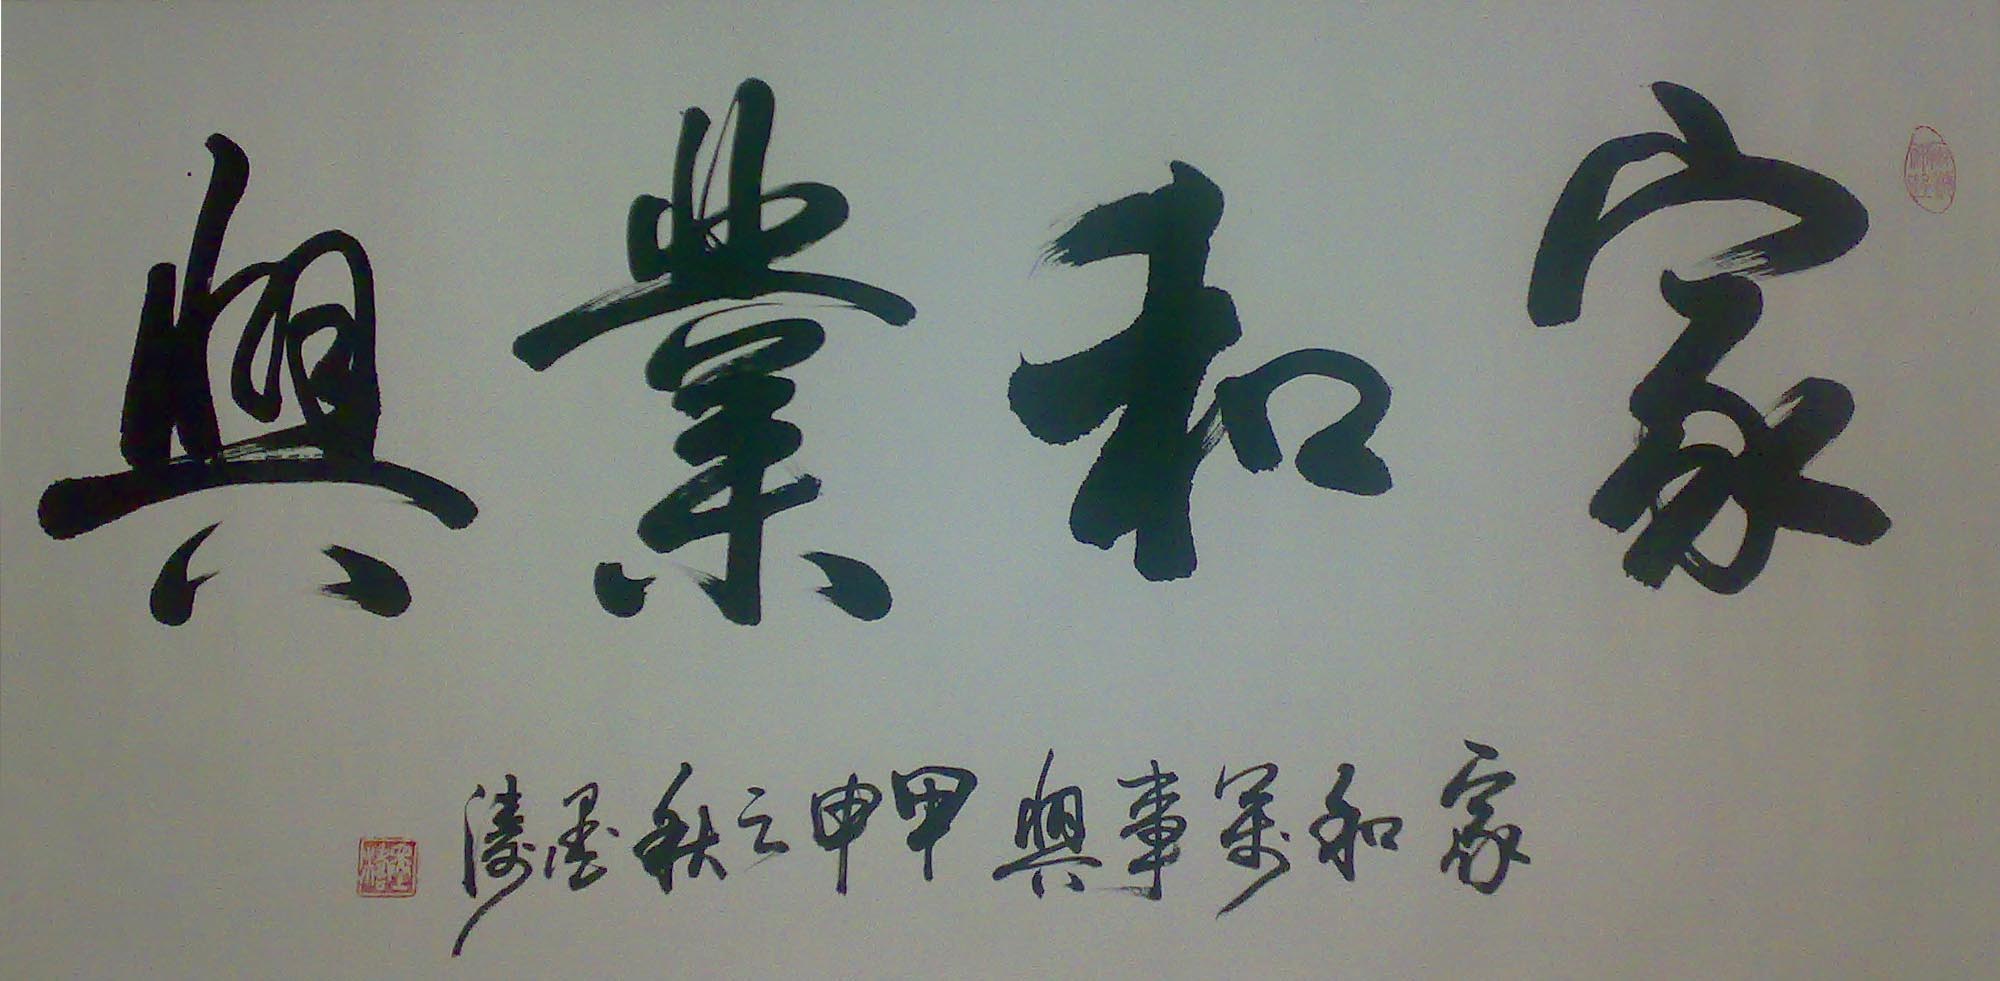 家和業興
家和萬事興 甲申之秋墨濤